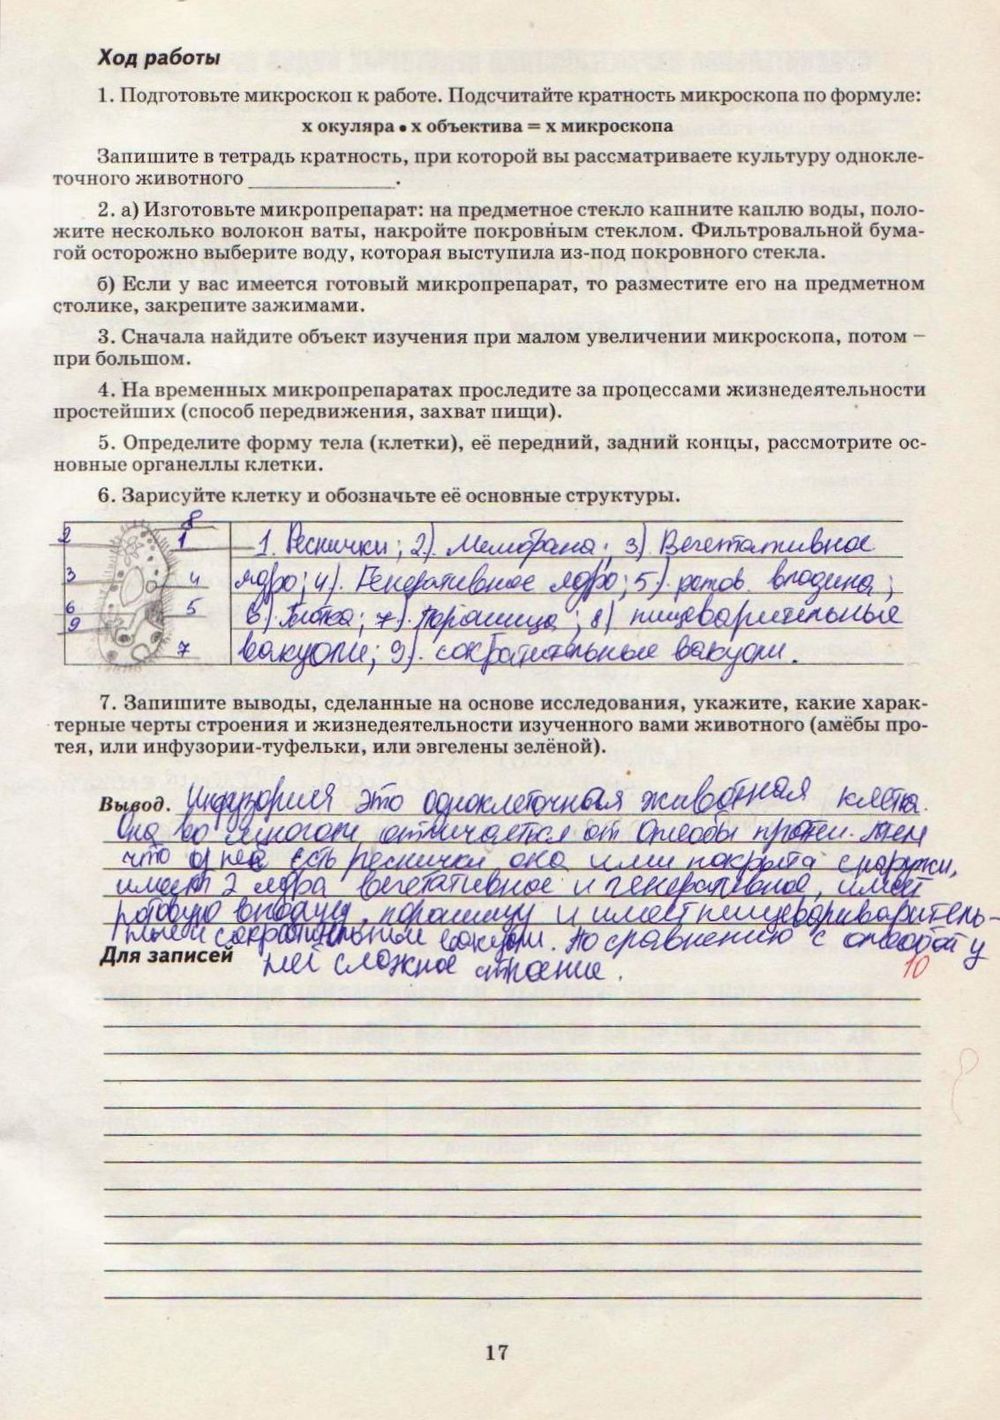 Ход работы
1. Подготовьте микроскоп к работе. Подсчитайте кратность микроскопа по формуле:
х окуляра • х объектива = х микроскопа
Запишите в тетрадь кратность, при которой вы рассматриваете культуру однокле-
точного животного ______________.
2. а) Изготовьте микропрепарат: на предметное стекло капните каплю воды, поло-
жите несколько волокон ваты, накройте покровным стеклом. Фильтровальной бума-
гой осторожно выберите воду, которая выступила из-под покровного стекла.
б) Если у вас имеется готовый микропрепарат, то разместите его на предметном
столике, закрепите зажимами.
3. Сначала найдите объект изучения при малом увеличении микроскопа, потом –
при большом.
4. На временных микропрепаратах проследите за процессами жизнедеятельности
простейших (способ передвижения, захват пищи).
5. Определите форму тела (клетки), её передний, задний концы, рассмотрите ос-
новные органеллы клетки.
6. Зарисуйте клетку и обозначьте её основные структуры.
8
2 1
3 4
6 5
9
7
1. Реснички; 2). Мембрана; 3). Вегетативное
ядро; 4). Генеративное ядро; 5). ротов. впадина;
6). Глотка; 7). Порошица; 8) пищеварительные
вакуоли; 9). сократительные вакуоли.
7. Запишите выводы, сделанные на основе исследования, укажите, какие харак-
терные черты строения и жизнедеятельности изученного вами животного (амёбы про-
тея, или инфузории-туфельки, или эвгелены зелёной).
Вывод. Инфузория это одноклеточная животная клетка.
Она во многом отличается от амебы протеи. Тем
что у неё есть реснички она ими покрыта снаружи,
имеет 2 ядра вегетативное и генеративное, имеет
ротовую впадину, порошицу и имеет пищевариваритель-
ные и сократительные вакуоли. По сравнению с амебой у
Для записей ней сложное строение.
10
17